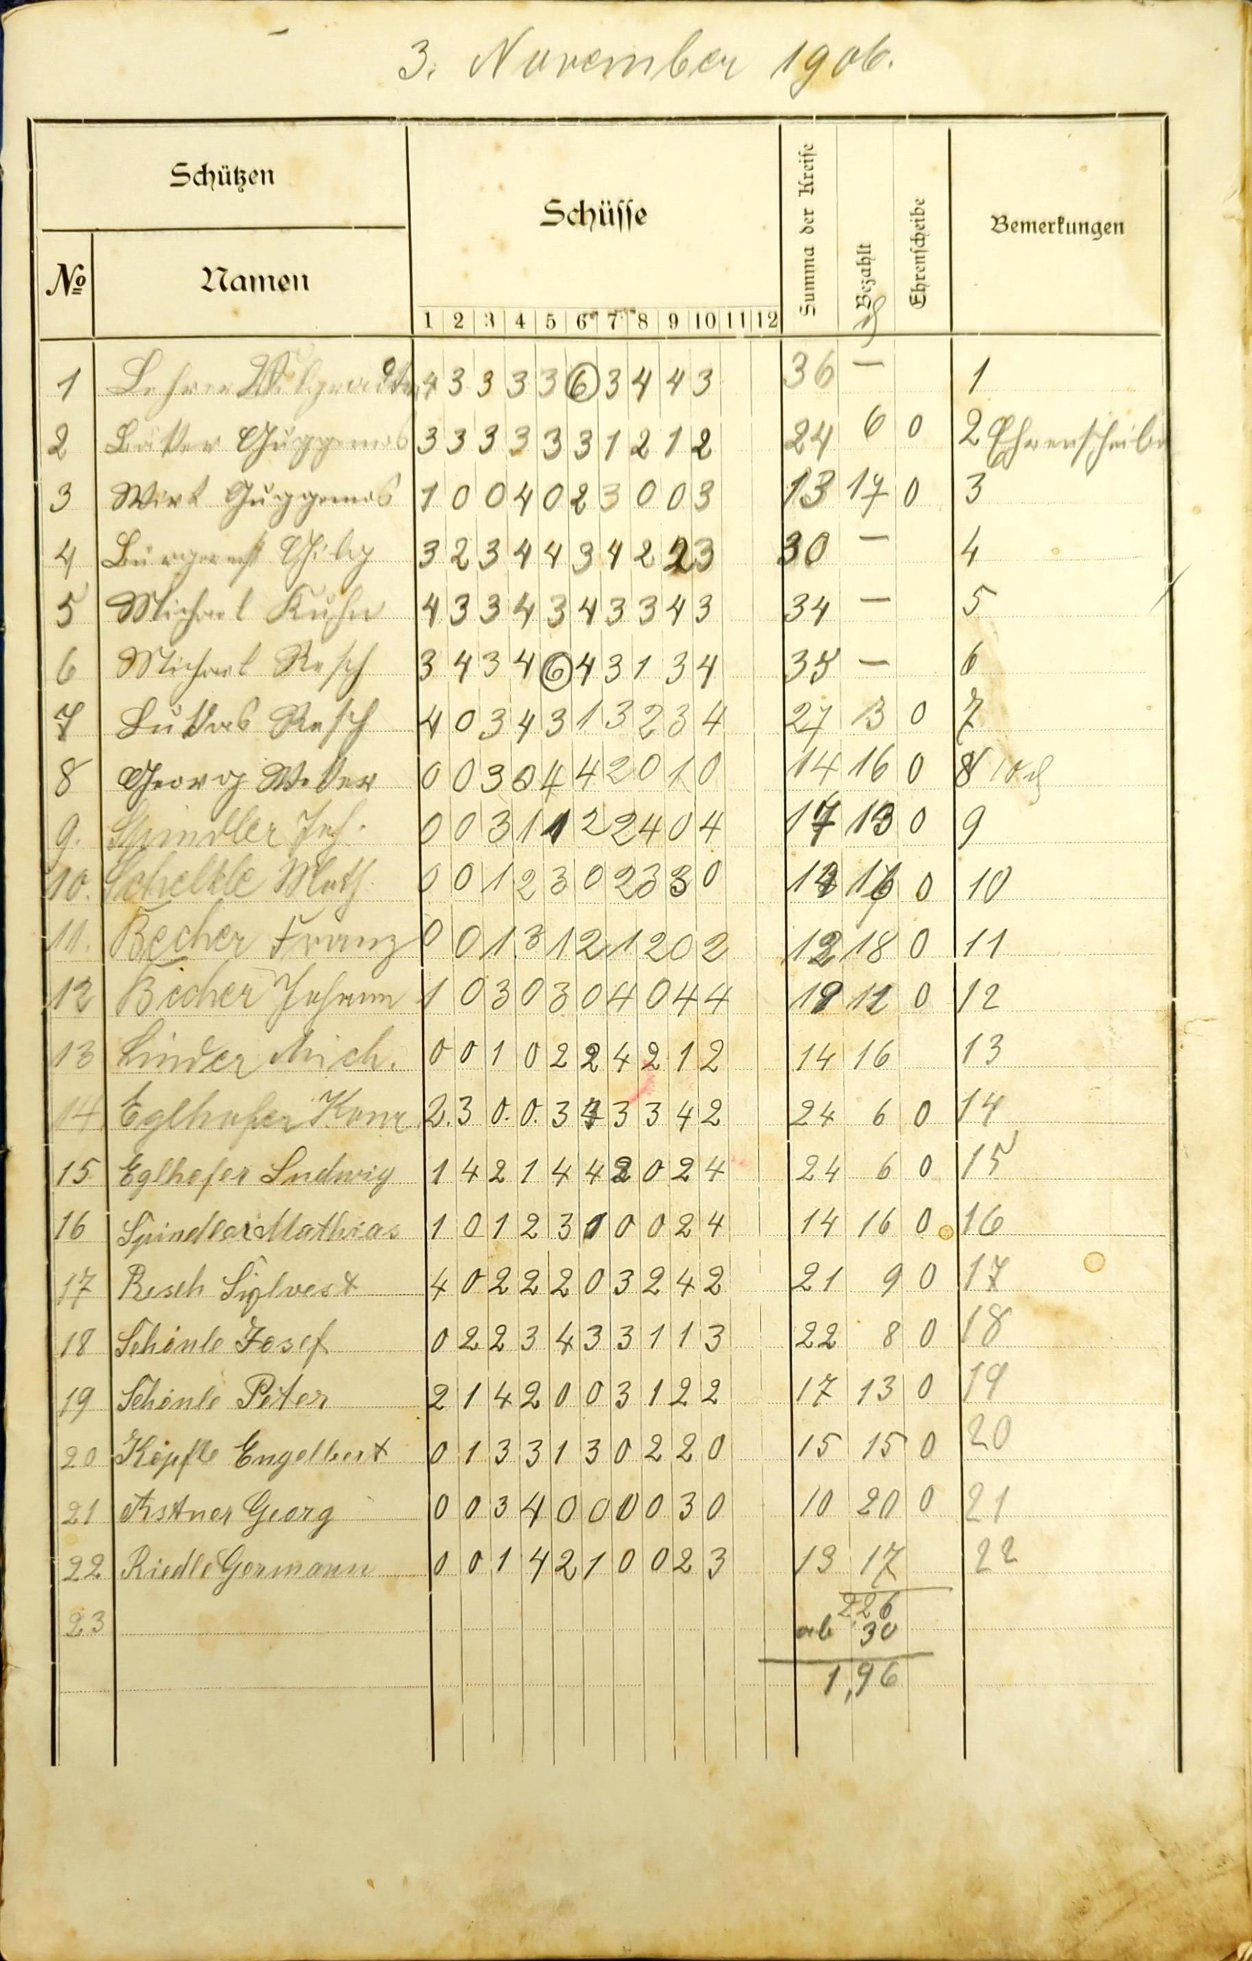 3. November 1906.
Schützen
Schüsse
Summa der Kreise
Bezahlt
Ehrenscheibe
Bemerkungen
No
Namen
1 2 3 4 5 6 7 8 9 10 11 12
1 Lehrer 4 3 3 3 3 6 3 4 4 3 36 — 1
2 Guggemos 3 3 3 3 3 3 1 2 1 2 24 6 0 2 Ehrenscheibe
3 Wirt Guggemos 1 0 0 4 0 2 3 0 0 3 13 17 0 3
4 3 2 3 4 4 3 4 2 2 3 30 — 4
5 Michael Kuhn 4 3 3 4 3 4 3 3 4 3 34 — 5
6 Michael Resch 3 4 3 4 6 4 3 1 3 4 35 — 6
7 Lukas Resch 4 0 3 4 3 1 3 2 3 4 27 13 0 7
8 Georg Weber 0 0 3 0 4 4 2 0 1 0 14 16 0 8
9. Spindler Joh. 0 0 3 1 1 2 2 4 0 4 17 13 0 9
10. Schelkle Math. 0 0 1 2 3 0 2 3 3 0 14 16 0 10
11. Becher Franz 0 0 1 3 1 2 1 2 0 2 12 18 0 11
12 Becher Johann 1 0 3 0 3 0 4 0 4 4 19 11 0 12
13 Linder Mich. 0 0 1 0 2 2 4 2 1 2 14 16 13
14 Eglhofer Konr 2. 3 0. 0. 3 4 3 3 4 2 24 6 0 14
15 Eglhofer Ludwig 1 4 2 1 4 4 2 0 2 4 24 6 0 15
16 Spindler Mathias 1 0 1 2 3 1 0 0 2 4 14 16 0 16
17 Resch Sylvest 4 0 2 2 2 0 3 2 4 2 21 9 0 17
18 Schönle Josef 0 2 2 3 4 3 3 1 1 3 22 8 0 18
19 Schönle Peter 2 1 4 2 0 0 3 1 2 2 17 13 0 19
20 Köpfle Engelbert 0 1 3 3 1 3 0 2 2 0 15 15 0 20
21 Georg 0 0 3 4 0 0 0 0 3 0 10 20 0 21
22 Riedle Germann 0 0 1 4 2 1 0 0 2 3 13 17 22
2,26
23 ab 30
1,96